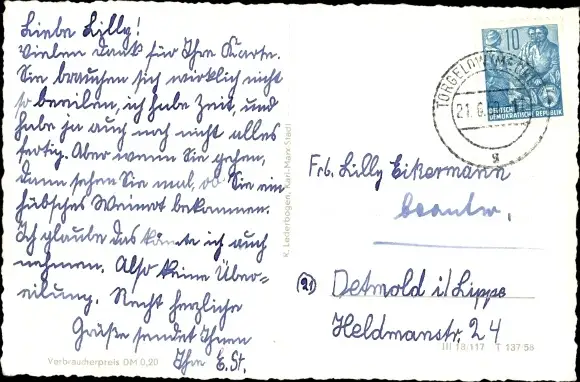 Liebe Lilly!
Vielen Dank für Ihre Karte.
Sie brauchen sich wirklich nicht
so beeilen, ich habe Zeit, und
habe ja auch noch nicht alles
fertig. Aber wenn Sie gehen,
dann sehen Sie mal, ob Sie ein
hübsches Weinrot bekommen.
Ich glaube das könnte ich auch
nehmen. Also keine Über-
eilung. Recht herzliche
Grüße sendet Ihnen
Ihre E. St.
Verbraucherpreis DM 0,20
K. Lederbogen, Karl-Marx-Stadt
10
DEUTSCHE
DEMOKRATISCHE REPUBLIK
TORGELOW
21. 6.
g
Frl. Lilly Eikermann
beantw.
(21) Detmold i/Lippe
Heldmanstr. 24
III 18/117 T 137 58